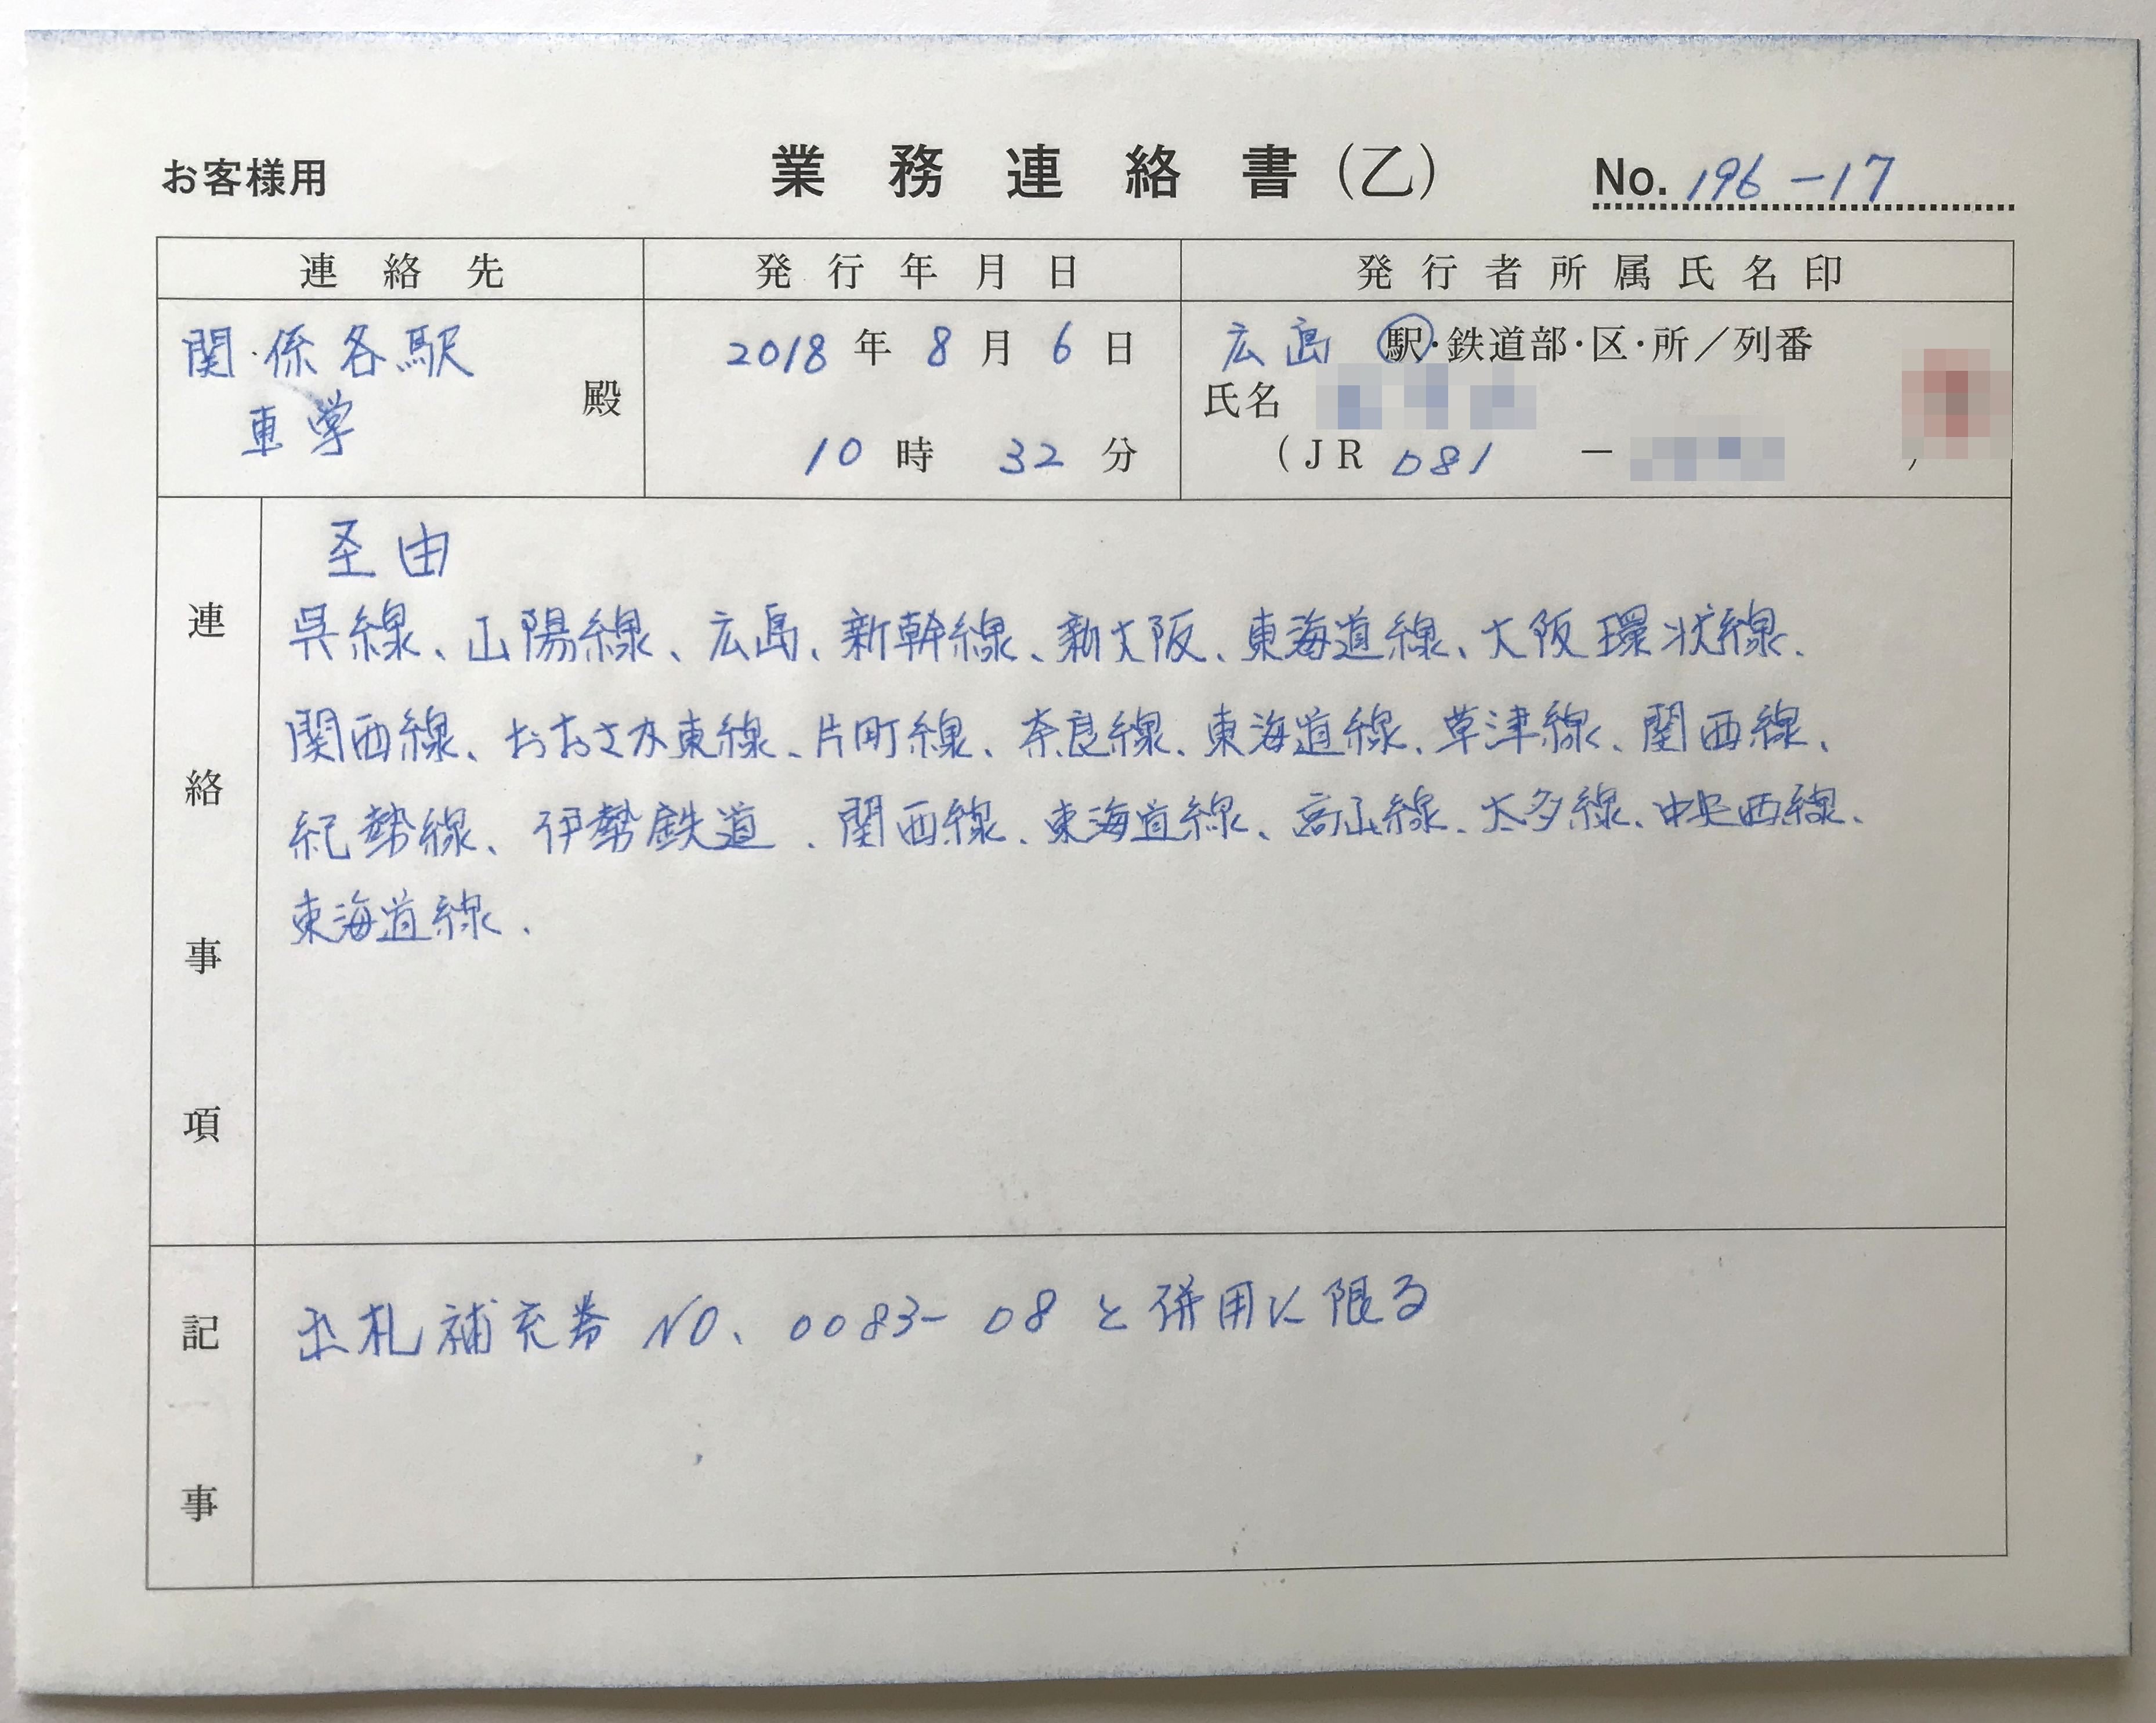 お客様用
業務連絡書(乙)
No. 196-17
連絡先
発行年月日
発行者所属氏名印
関係各駅
車掌
殿
2018年8月6日
10時32分
広島 駅・鉄道部・区・所/列番
氏名
(JR 081 - )
連絡事項
圣由
呉線、山陽線、広島、新幹線、新大阪、東海道線、大阪環状線、
関西線、おおさか東線、片町線、奈良線、東海道線、草津線、関西線、
紀勢線、伊勢鉄道、関西線、東海道線、高山線、太多線、中央西線、
東海道線、
記事
出札補充券 NO、0083-08 と併用に限る